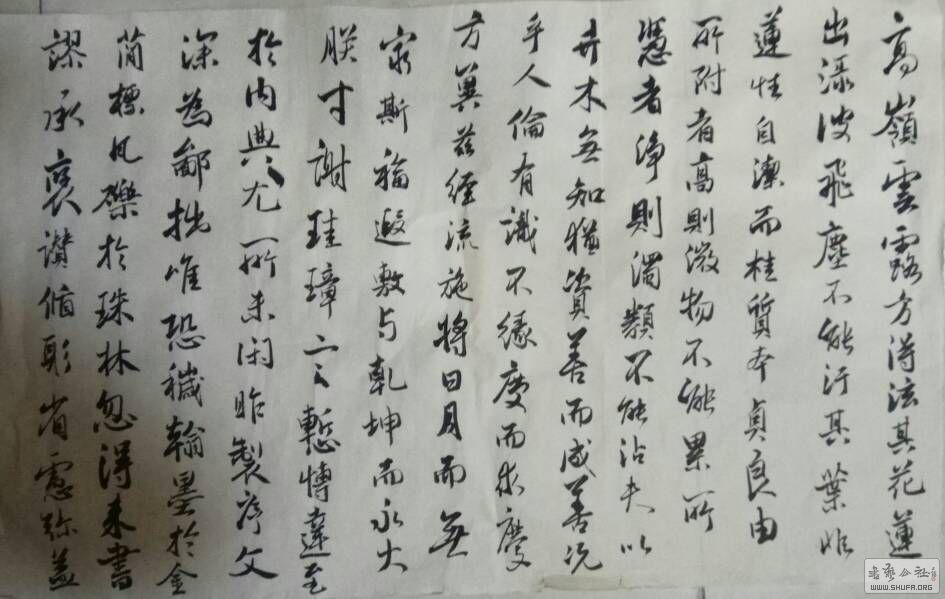 高嶺雲露方得泫其花蓮
出淥波飛塵不能汙其葉非
蓮性自潔而桂質本貞良由
所附者高則微物不能累所
憑者淨則濁類不能沾夫以
卉木無知猶資善而成善況
乎人倫有識不緣慶而求慶
方冀茲經流施將日月而無
窮斯福遐敷与乾坤而永大
朕才謝珪璋言慙博達至
於內典尤所未閑昨製序文
深為鄙拙唯恐穢翰墨於金
簡標瓦礫於珠林忽得来書
謬承褒讚循躬省慮弥益
书艺公社
WWW.SHUFA.ORG